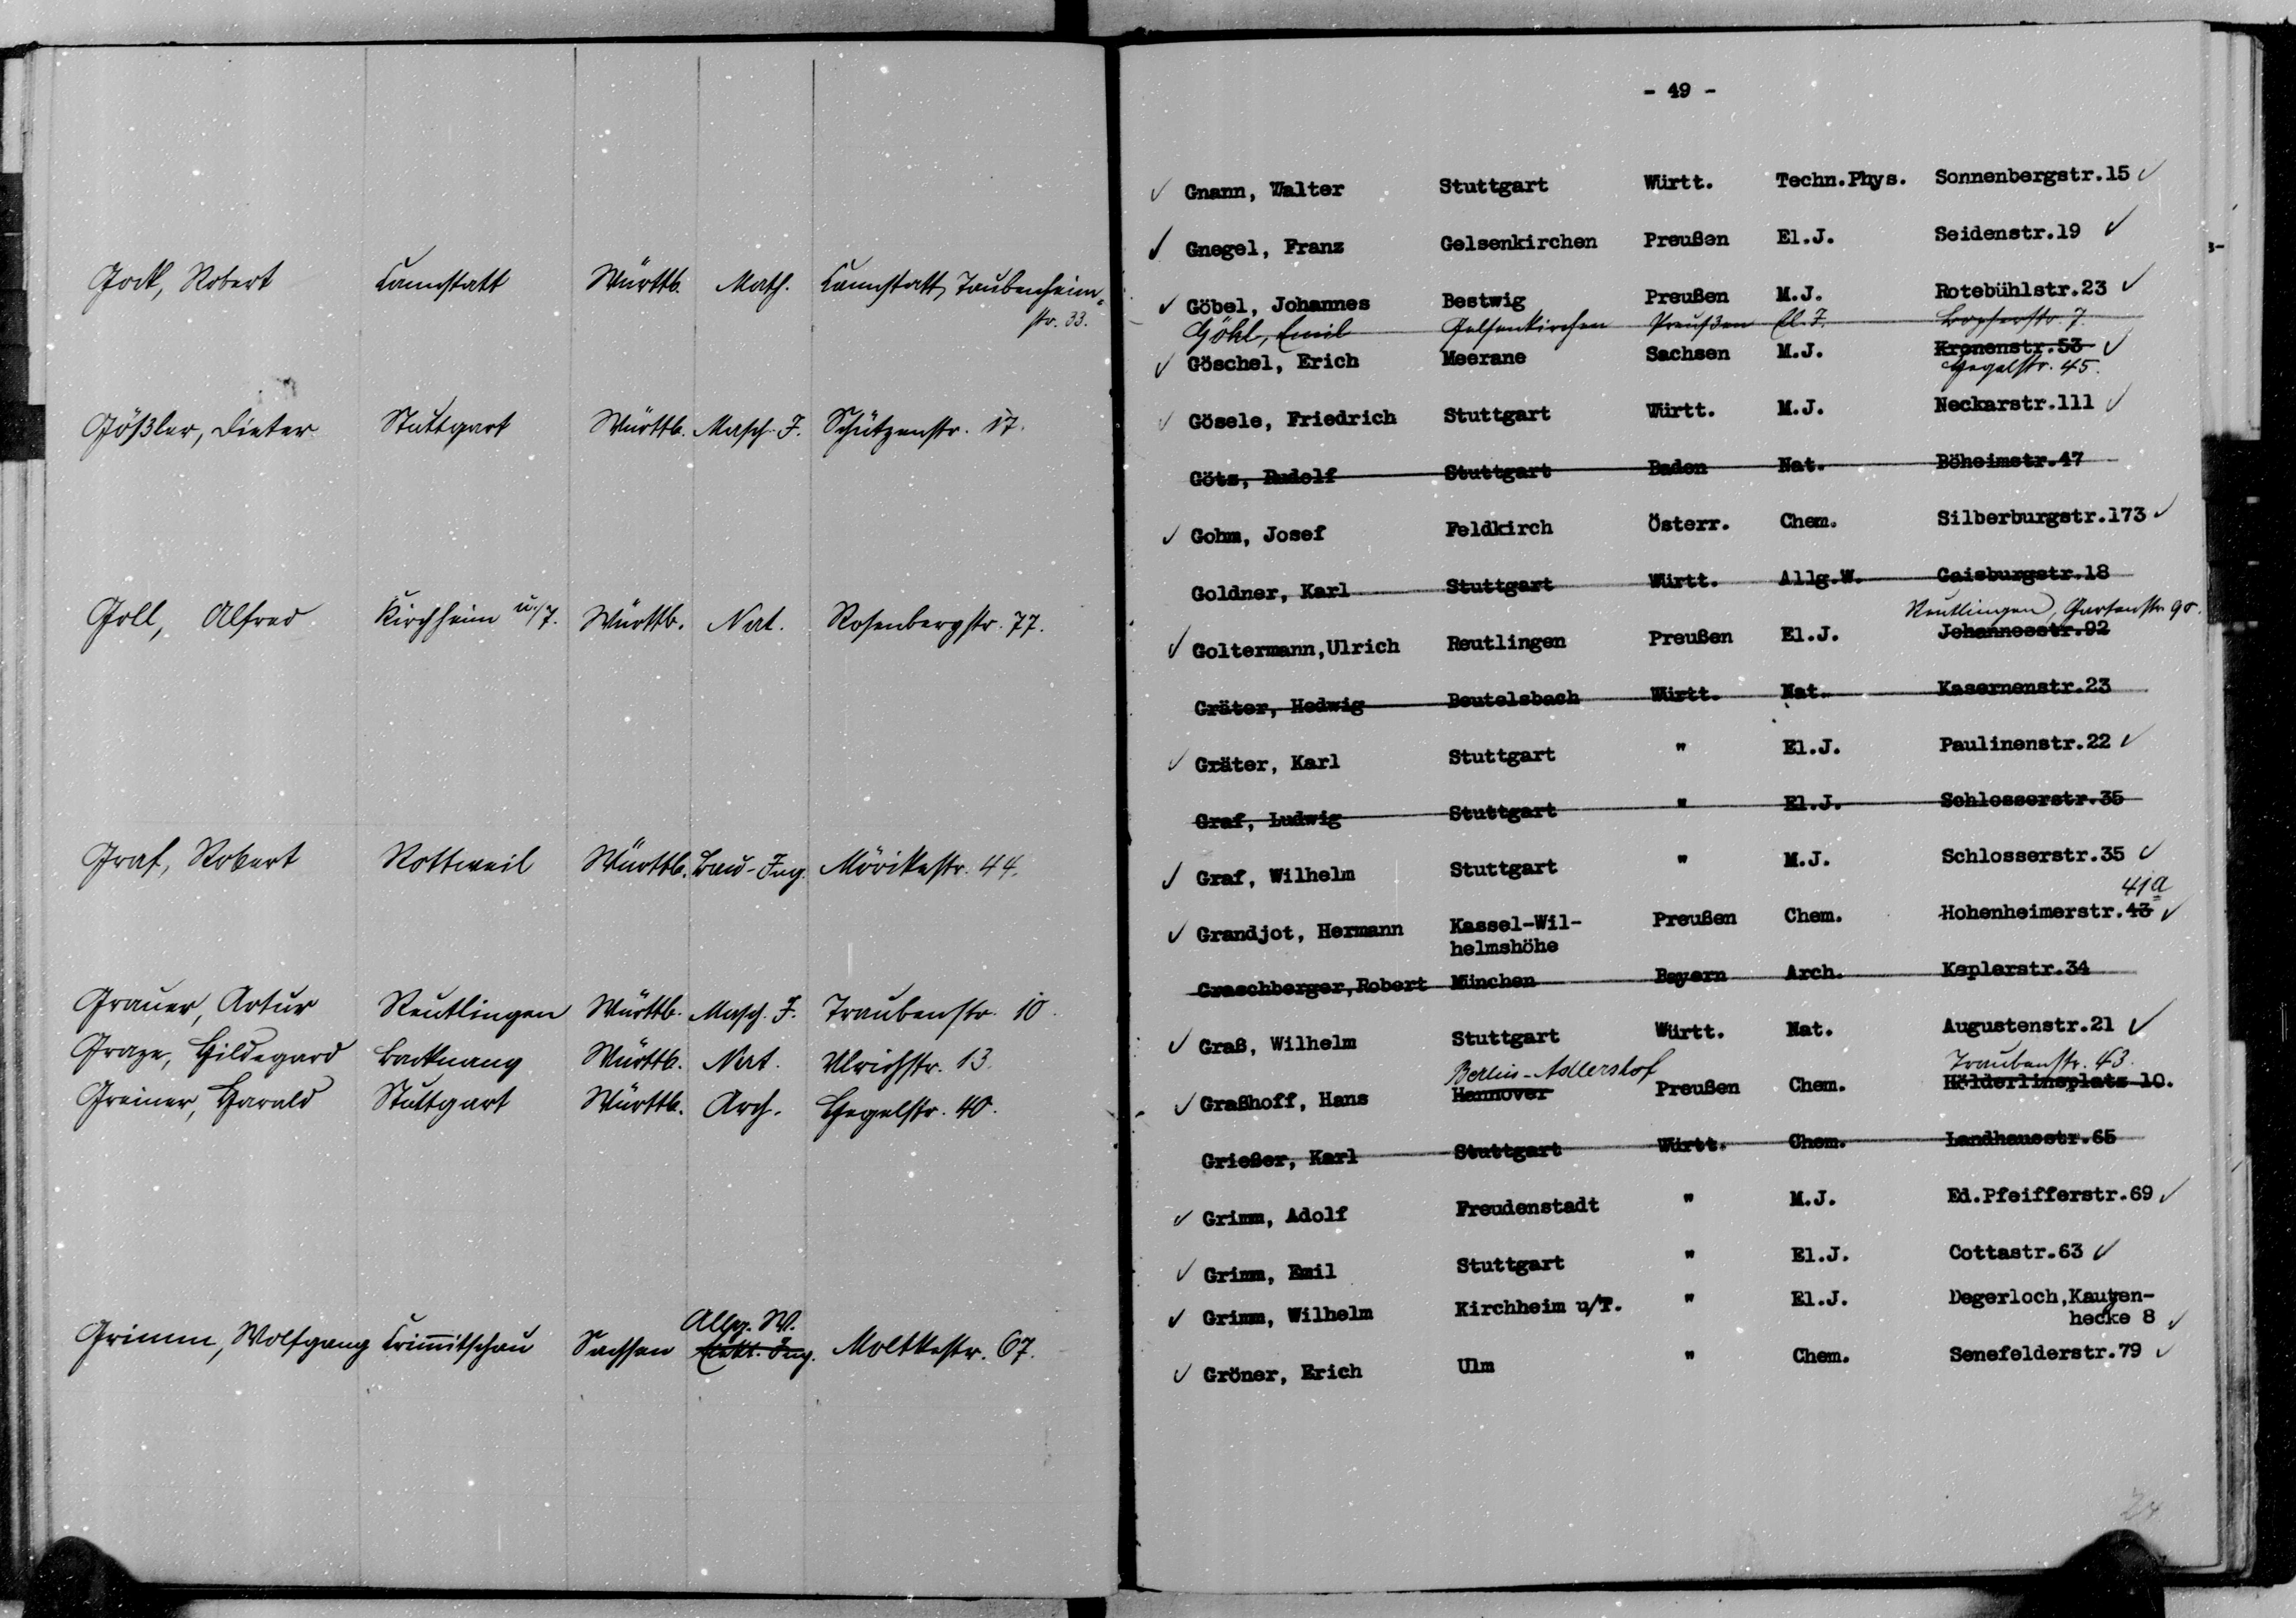 Gock, Robert Cannstatt Württb. Math. Cannstatt, Taubenheim-
str. 33.
Gößler, Dieter Stuttgart Württb. Masch. J. Schützenstr. 17.
Goll, Alfred Kirchheim u/T. Württb. Nat. Rosenbergstr. 77.
Graf, Robert Rottweil Württb. Bau-Ing. Mörikestr. 44.
Grauer, Artur Reutlingen Württb. Masch. J. Traubenstr. 10.
Graze, Hildegard Backnang Württb. Nat. Ulrichstr. 13.
Greiner, Harald Stuttgart Württb. Arch. Hegelstr. 40.
Allg. W.
Grimm, Wolfgang Crimmitschau Sachsen Elekt. Ing. Moltkestr. 67.
- 49 -
✓ Gnann, Walter Stuttgart Württ. Techn.Phys. Sonnenbergstr.15 ✓
✓ Gnegel, Franz Gelsenkirchen Preußen El.J. Seidenstr.19 ✓
✓ Göbel, Johannes Bestwig Preußen M.J. Rotebühlstr.23 ✓
Göhl, Emil Gelsenkirchen Preußen El. J. Bopserstr. 7.
✓ Göschel, Erich Meerane Sachsen M.J. Kronenstr.53 ✓
Hegelstr. 45.
✓ Gösele, Friedrich Stuttgart Württ. M.J. Neckarstr.111 ✓
Götz, Rudolf Stuttgart Baden Nat. Böheimstr.47
✓ Gohm, Josef Feldkirch Österr. Chem. Silberburgstr.173 ✓
Goldner, Karl Stuttgart Württ. Allg.W. Gaisburgstr.18
Reutlingen, Gartenstr. 90.
✓ Goltermann,Ulrich Reutlingen Preußen El.J. Johannesstr.92
Gräter, Hedwig Beutelsbach Württ. Nat. Kasernenstr.23
✓ Gräter, Karl Stuttgart " El.J. Paulinenstr.22 ✓
Graf, Ludwig Stuttgart " El.J. Schlosserstr.35
✓ Graf, Wilhelm Stuttgart " M.J. Schlosserstr.35 ✓
41a
✓ Grandjot, Hermann Kassel-Wil- Preußen Chem. Hohenheimerstr.43 ✓
helmshöhe
Graschberger,Robert München Bayern Arch. Keplerstr.34
✓ Graß, Wilhelm Stuttgart Württ. Nat. Augustenstr.21 ✓
Berlin-Adlershof Traubenstr. 43.
✓ Graßhoff, Hans Hannover Preußen Chem. Hölderlinsplatz 10.
Grießer, Karl Stuttgart Württ. Chem. Landhausstr.65
✓ Grimm, Adolf Freudenstadt " M.J. Ed.Pfeifferstr.69 ✓
✓ Grimm, Emil Stuttgart " El.J. Cottastr.63 ✓
✓ Grimm, Wilhelm Kirchheim u/T. " El.J. Degerloch,Kautzen-
hecke 8 ✓
✓ Gröner, Erich Ulm " Chem. Senefelderstr.79 ✓